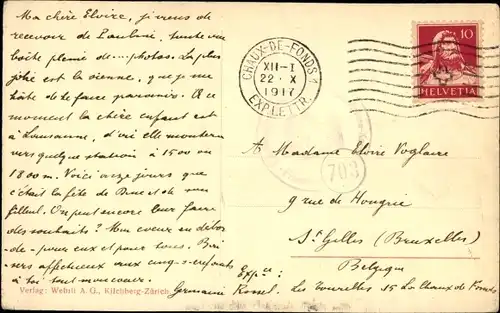 Ma chère Elvire, je viens de
recevoir de Paulmi, toute une
boîte pleine de ... photos. La plus
jolie est la sienne, que je me
hâte de te faire parvenir. A ce
moment la chère enfant est
à Lausanne, d'où elle montera
vers quelque station à 1500 ou
1800 m. Voici onze jours que
c'était la fête de René et de mon
filleul. On peut encore leur faire
des souhaits? Mon coeur en débor-
de - pour eux et pour tous. Bai-
sers affectueux aux cinq enfants
à toi tout mon coeur.
Germaine Rossel.
Verlag: Wehrli A. G., Kilchberg-Zürich
CHAUX-DE-FONDS 1
XII-I
22·X
1917
EXP.LETTR.
10
HELVETIA
703
A Madame Elvire Voglaire
9 rue de Hongrie
St Gilles (Bruxelles)
Belgique
Exp.:
Les Tourelles 15 La Chaux de Fonds